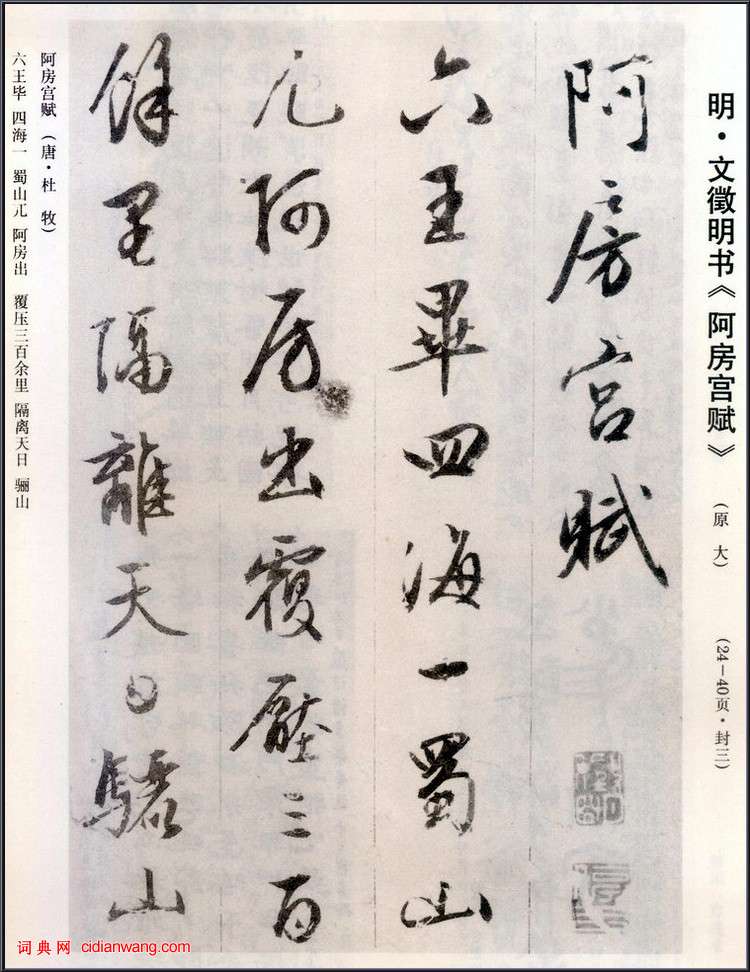 明·文徵明书《阿房宫赋》 (原大) (24—40页·封三)
阿房宫赋
六王畢四海一蜀山
兀阿房出覆壓三百
餘里隔離天日驪山
阿房宫赋 (唐·杜 牧)
六王毕 四海一 蜀山兀 阿房出 覆压三百余里 隔离天日 骊山
词典网 cidianwang.com